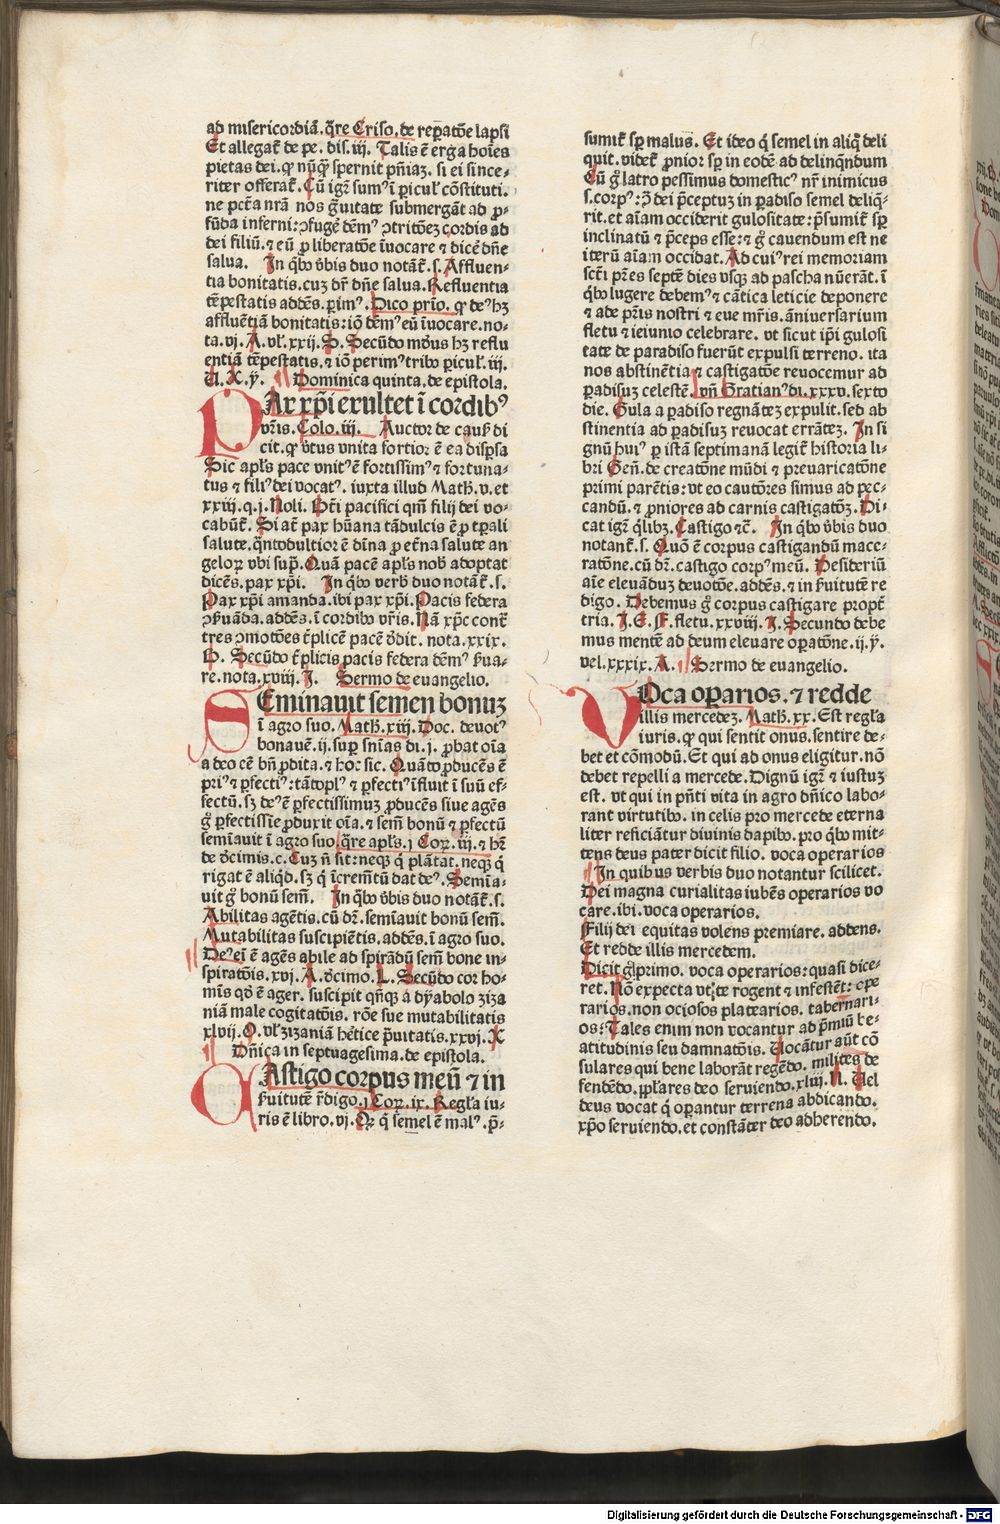 ad misericordiā. q̄re Criso. de rep̱atōe lapsi
Et allegat̄ de pe. dis. iij. Talis ē erga hoīes
pietas dei. ꝙ nūq̄ꝫ spernit pn̄iaꝫ. si ei since-
riter offerat̄. Cū igr̄ sumꝰ ī pericul' cōstituti.
ne pct̄a nr̄a nos gͣuitate submergāt ad ꝓ-
fūda inferni: ↄfugeͣ dēmꝰ ↄtritōeꝫ cordis ad
dei filiū. ⁊ eū ꝓ liberatōe īuocare ⁊ diceͣ dn̄e
salua. In qͥbꝰ v̄bis duo notāt̄. s. Affluen-
tia bonitatis. cuꝫ dr̄ dn̄e salua. Refluentia
tēpestatis addēs. ꝑimꝰ. Dico prīo. ꝙ deꝰ hꝫ
affluētiā bonitatis: iō dēmꝰ eū īuocare. no-
ta. vj. A. vl'. xxij. S. Secūdo mōus hꝫ reflu
entiā tēpestatis. ⁊ iō perimꝰ tribꝰ pericul'. iij.
U. X. ẏ. Dominica quinta. de epistola.
PAx xp̄i exultet ī cordibꝰ
vr̄is. Colo. iij. Auctor de causis di
cit. ꝙ v̄tus vnita fortior ē ea disp̱sa
Sic apl's pace vnitꝰ ē fortissimꝰ ⁊ fortuna-
tus ⁊ filiꝰ dei vocatꝰ. iuxta illud Math. v. et
xxiij. q. j. Noli. Bt̄i pacifici qm̄ filij dei vo-
cabūt̄. Si at̄ pax hūana tādulcis ē ꝓ tp̱ali
salute. q̄ntodultior ē dīna ꝓ et̄na salute an
geloꝝ vbi sup̱. Quā pacē apl's nob̄ adoptat
dicēs. pax xp̄i. In qͥbꝰ verb̄ duo notāt̄. s.
Pax xp̄i amanda. ibi pax xp̄i. Pacis federa
ↄẜuāda. addēs. ī cordibꝰ vr̄is. Nā xp̄c cont̄
tres ↄmotōes t̄plicē pacē v̄dit. nota. xxix.
B. Secūdo t̄plicis pacis federa dēmꝰ ẜua-
re. nota. xviij. J. Sermo de euangelio.
SEminauit semen bonuꝫ
ī agro suo. Math. xiij. Doc. deuotꝰ
bonauē. ij. sup̱ sn̄ias di. j. ꝓbat oīa
a deo cē bn̄ ꝓdita. ⁊ hoc sic. Quāto ꝓducēs ē
priꝰ ⁊ ꝑfectiꝰ: tātoplꝰ ⁊ ꝑfectiꝰ īfluit ī suū ef-
fectū. sꝫ deꝰ ē ꝑfectissimuꝫ ꝓducēs siue agēs
gͦ ꝑfectissīe ꝓduxit oīa. ⁊ sem̄ bonū ⁊ ꝑfectū
semīauit ī agro suo. q̄re apl's. j Coꝝ. iij. ⁊ hr̄
de v̄cimis. c. Cuꝫ n̄ sit: neqꝫ qͥ plātat. neqꝫ qͥ
rigat ē aliqͥd. sꝫ qͥ īcremt̄ū dat deꝰ. Semīa-
uit gͦ bonū sem̄. In qͥbꝰ v̄bis duo notāt̄. s.
Abilitas agētis. cū dr̄. semīauit bonū sem̄.
Mutabilitas suscipiētis. addēs. ī agro suo.
Deꝰ eī ē agēs abile ad spirādū sem̄ bone in-
spiratōis. xvj. A. v̄cimo. L. Secūdo cor ho-
mīs qd̄ ē ager. suscipit qn̄qꝫ a dẏabolo ziza
niā male cogitatōis. rōe sue mutabilitatis
xlvij. O. vl' zizaniā hētice p̄uitatis. xxvj. X
Dn̄ica in septuagesima. de epistola.
CAstigo corpus meū ⁊ in
ẜuitutē r̄digo. j Coꝝ. ix. Regl'a iu-
ris ē libro. vj. Qꝝ qͥ semel ē malꝰ. p̄-
sumit̄ sp̱ malus. Et ideo qͥ semel in aliqͦ deli
quit. videt̄ ꝓnioꝛ: sp̱ in eodē ad delinqn̄dum
Cū gͦ latro pessimus domesticꝰ nr̄ inimicus
s. corpꝰ: ↄ̄ dei p̄ceptuꝫ in ꝑadiso semel deliq̄-
rit. et aīam occiderit gulositate: p̄sumit̄ sp̱
inclinatū ⁊ p̄ceps esse: ⁊ gͦ cauendum est ne
iterū aīam occidat. Ad cuiꝰ rei memoriam
sct̄i pr̄es septē dies vsqꝫ ad pascha nūerāt. ī
qͥbꝰ lugere debemꝰ ⁊ cātica leticie deponere
⁊ ade pr̄is nostri ⁊ eue mr̄is. āniuersarium
fletu ⁊ ieiunio celebrare. vt sicut ip̄i gulosi
tate de paradiso fuerūt expulsi terreno. ita
nos abstinētia ⁊ castigatōe reuocemur ad
ꝑadisuꝫ celestē. vn̄ Gratianꝰ di. xxxv. sexto
die. Gula a ꝑadiso regnāteꝫ expulit. sed ab
stinentia ad ꝑadisuꝫ reuocat errāteꝫ. In si
gnū huiꝰ ꝑ istā septimanā legit̄ historia li-
bri Gen̄. de creatōne mūdi ⁊ preuaricatōne
primi parētis: vt eo cautōres simus ad pec-
candū. ⁊ ꝓniores ad carnis castigatōꝫ. Di-
cat igr̄ qͥlibꝫ. Castigo ⁊c̄. In qͥbꝰ v̄bis duo
notant̄. s. Quō ē corpus castigandū mace-
ratōne. cū dr̄. castigo corpꝰ meū. Desideriū
aīe eleuāduꝫ deuotōe. addēs. ⁊ in ẜuitutē re
digo. Debemus gͦ corpus castigare propt̄
tria. J. E. F. fletu. xxviij. J. Secundo debe
mus mentē ad deum eleuare oꝑatōne. ij. ẏ.
vel. xxxix. A. Sermo de euangelio.
VOca oꝑarios. ⁊ redde
illis mercedeꝫ. Math. xx. Est regl'a
iuris. ꝙ qui sentit onus. sentire de-
bet et cōmodū. Et qui ad onus eligitur. nō
debet repelli a mercede. Dignū igr̄ ⁊ iustuꝫ
est. vt qui in pn̄ti vita in agro dn̄ico labo-
rant virtutibꝰ. in celis pro mercede eterna
liter reficiātur diuinis dapibꝰ. pro qͥbꝰ mit-
tens deus pater dicit filio. voca operarios
In quibus verbis duo notantur scilicet.
Dei magna curialitas iubēs operarios vo
care. ibi. voca operarios.
Filij dei equitas volens premiare. addens.
Et redde illis mercedem.
Dicit gͦ primo. voca operarios: quasi dice-
ret. Nō expecta vt te rogent ⁊ infestēt: ope
rarios. non ociosos platearios. tabernari-
os: Tales enim non vocantur ad p̄miū be-
atitudinis seu damnatōis. Uocātur aūt cō
sulares qui bene laborāt regēdo. milites de
fendēdo. p̄lares deo seruiendo. xliij. N. Uel
deus vocat qͥ oꝑantur terrena abdicando.
xp̄o seruiendo. et constāter deo adherendo.
Digitalisierung gefördert durch die Deutsche Forschungsgemeinschaft - DFG